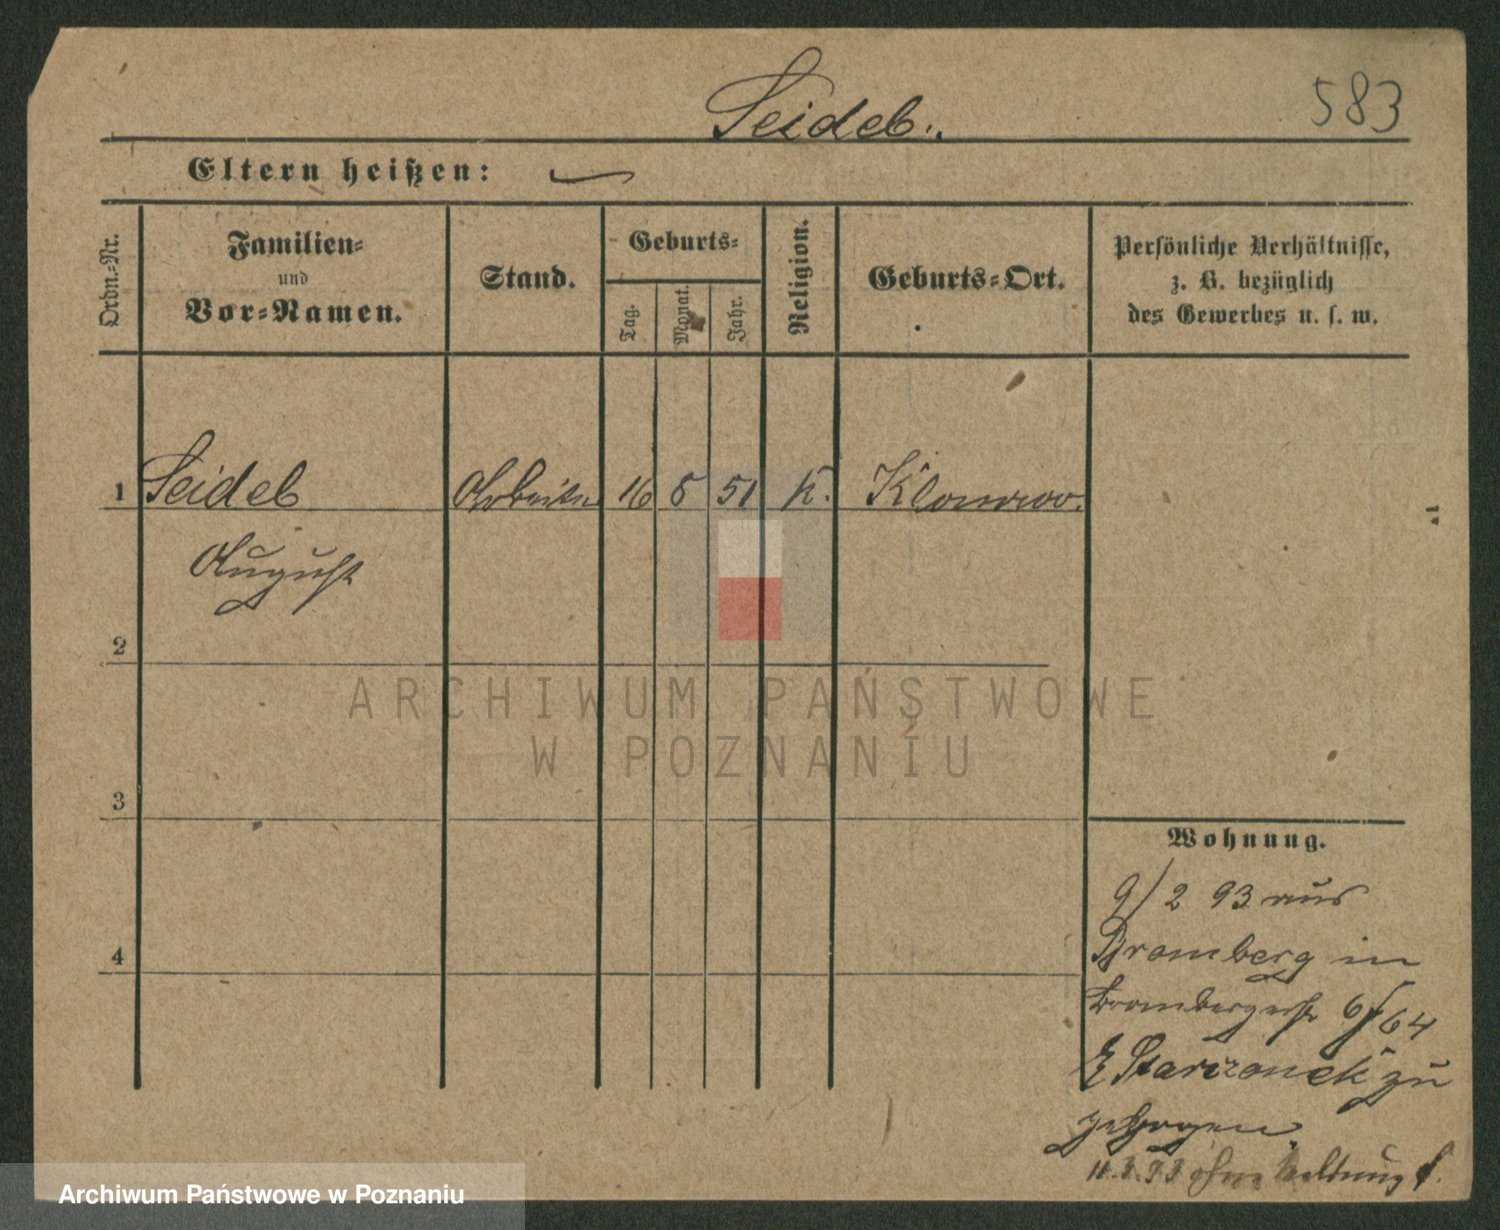 Seidel.
583
Eltern heißen:
Ordn.-Nr.
Familien-
und
Vor-Namen.
Stand.
Geburts-
Tag.
Monat.
Jahr.
Religion.
Geburts-Ort.
Persönliche Verhältnisse,
z. B. bezüglich
des Gewerbes u. s. w.
1 Seidel Arbeiter 16 8 51 K.
August
2
3
4
Wohnung.
9/2 93 aus
Bromberg in
Brombergerstr 64
zu
gezogen
ohne Meldung
ARCHIWUM PAŃSTWOWE
W POZNANIU
Archiwum Państwowe w Poznaniu